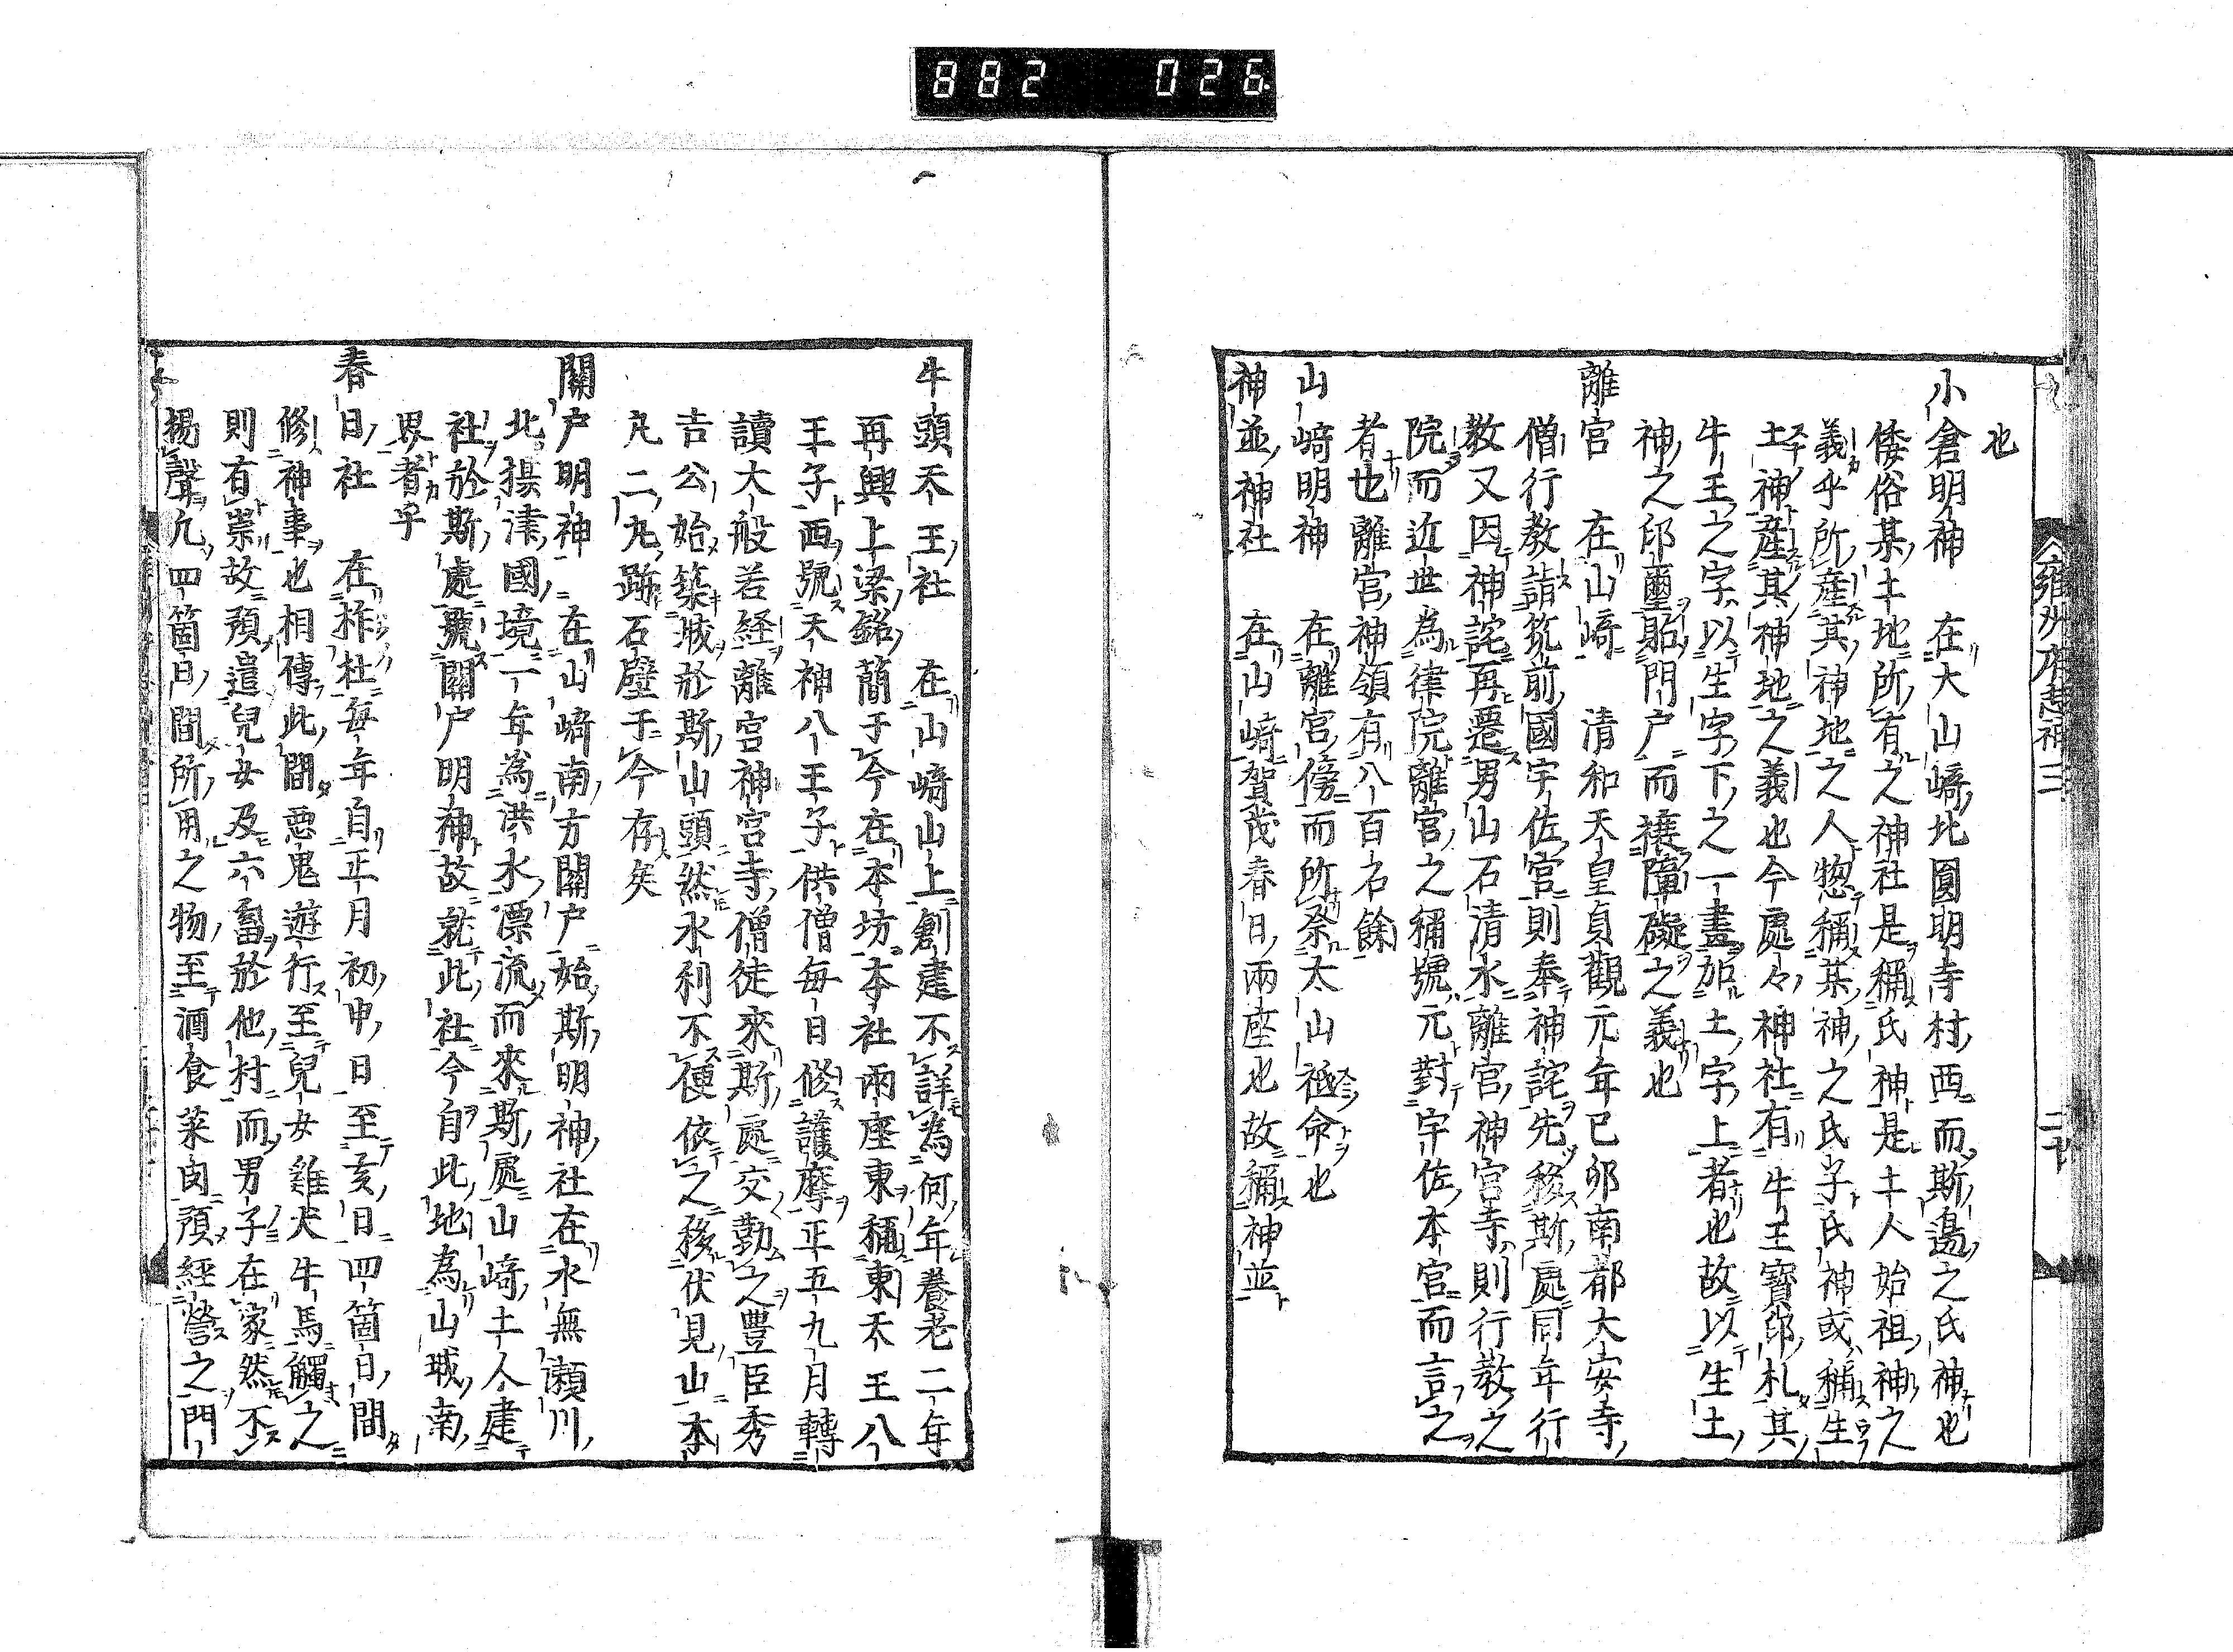 882 026
雍州府志神三 二十
也
小倉明神 在大山崎北圓明寺村西而斯邊之氏神也
倭俗某土地所有之神社是稱氏神是土人始祖神之
義乎所産其神地之人惣稱某神之氏子氏神或稱生
土神産其神地之義也今處々神社有牛王寶印札其
牛王之字以生字下之一畫加土字上者也故以生土
神之印璽貼門戸而禳障礙之義也
離宮 在山崎 清和天皇貞觀元年已卯南都大安寺
僧行教詣筑前國宇佐宮則奉神詫先移斯處同年行
教又因神詫再遷男山石清水離宮神宮寺則行教之
院而近世為律院離宮之稱號元對宇佐本宮而言之
者也離宮神領有八百石餘
山崎明神 在離宮傍而所祭大山祇命也
神並神社 在山崎賀茂春日兩座也故稱神並
牛頭天王社 在山崎山上創建不詳為何年養老二年
再興上梁銘簡于今在本坊本社兩座東稱東天王八
王子西號天神八王子供僧毎日修護摩正五九月轉
讀大般若経離宮神宮寺僧徒來斯處交勤之豐臣秀
吉公始築城於斯山頭然水利不便依之移伏見山本
丸二丸跡石壁于今存矣
關戸明神 在山崎南方關戸始斯明神社在水無瀬川
北揖津國境一年為洪水漂流而來斯處山崎土人建
社於斯處號關戸明神故就此社今自此地為山城南
界者乎
春日社 在柞杜毎年自正月初申日至亥日四箇日間
修神事也相傳此間惡鬼遊行至兒女雞犬牛馬觸之
則有祟故預遣兒女及六畜於他村而男子在家然不
揚聲凢四箇日間所用之物至酒食菜肉預經營之門